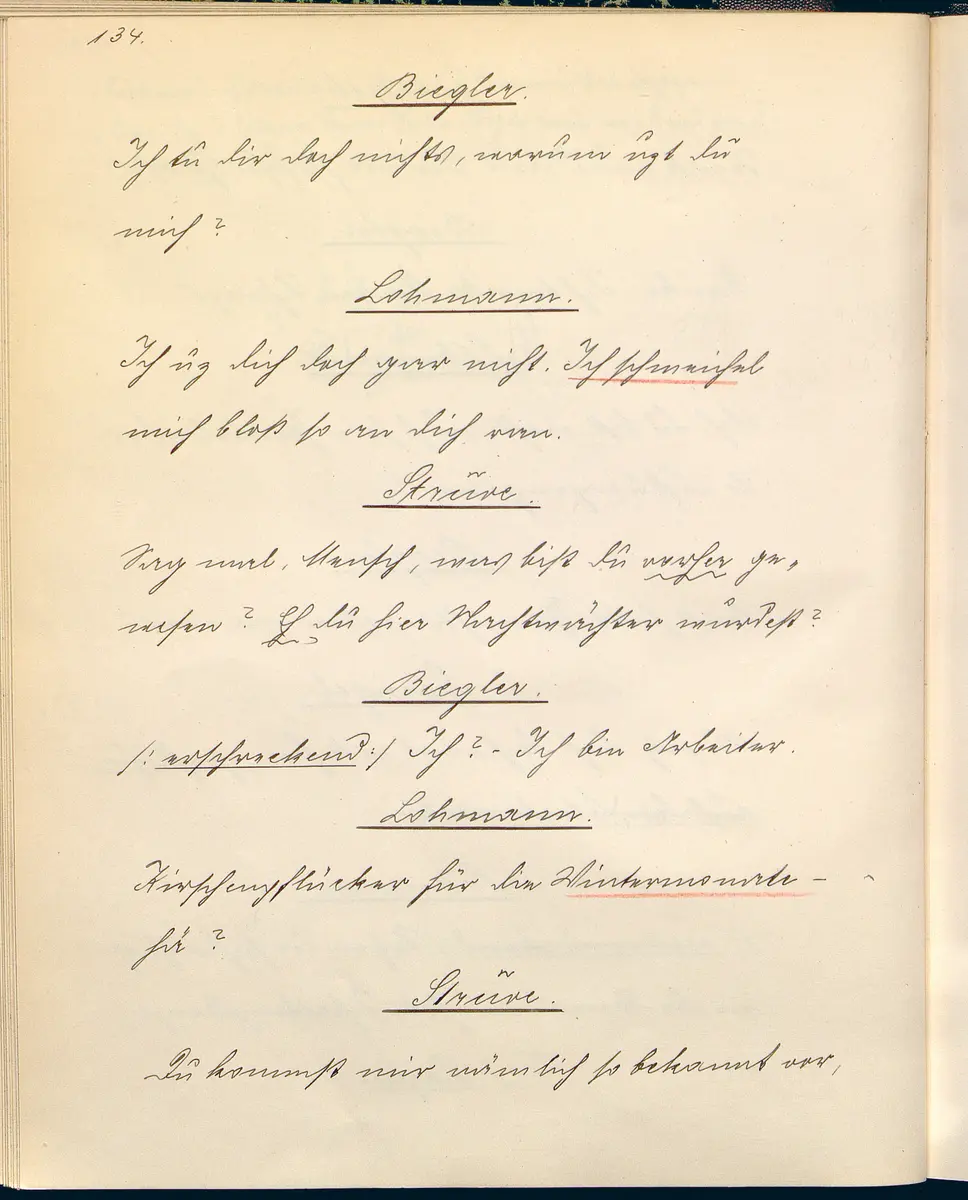 134.
Biegler.
Ich tu dir doch nichts, warum uzt du
mich?
Lohmann.
Ich uz dich doch gar nicht. Ich schmeichel
mich bloß so an dich ran.
Strüwe.
Sag mal, Mensch, was bist du vorher ge-
wesen? Eh du hier Nachtwächter wurdest?
Biegler.
/: erschreckend :/ Ich? - Ich bin Arbeiter.
Lohmann.
Kirschenpflücker für die Wintermonate -
hä?
Strüwe.
Du kommst mir nämlich so bekannt vor,